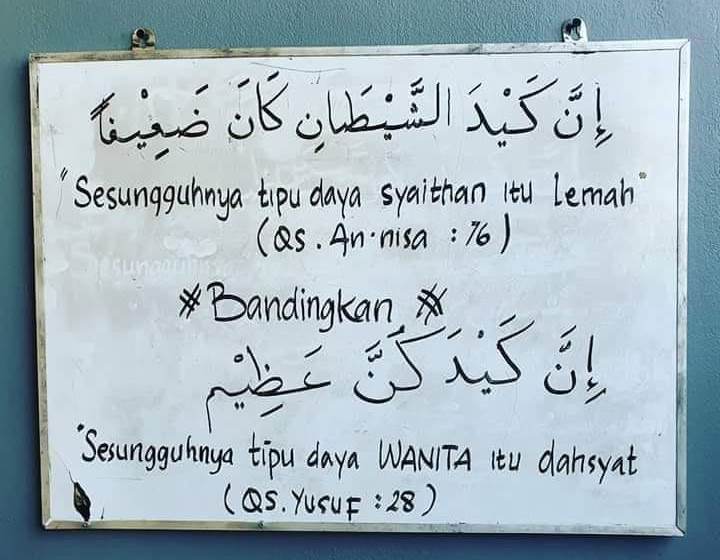 إِنَّ كَيْدَ الشَّيْطَانِ كَانَ ضَعِيْفاً
"Sesungguhnya tipu daya syaithan itu Lemah"
(QS. An-nisa : 76)
# Bandingkan #
إِنَّ كَيْدَ كُنَّ عَظِيْم
"Sesungguhnya tipu daya WANITA itu dahsyat
(QS. Yusuf : 28)